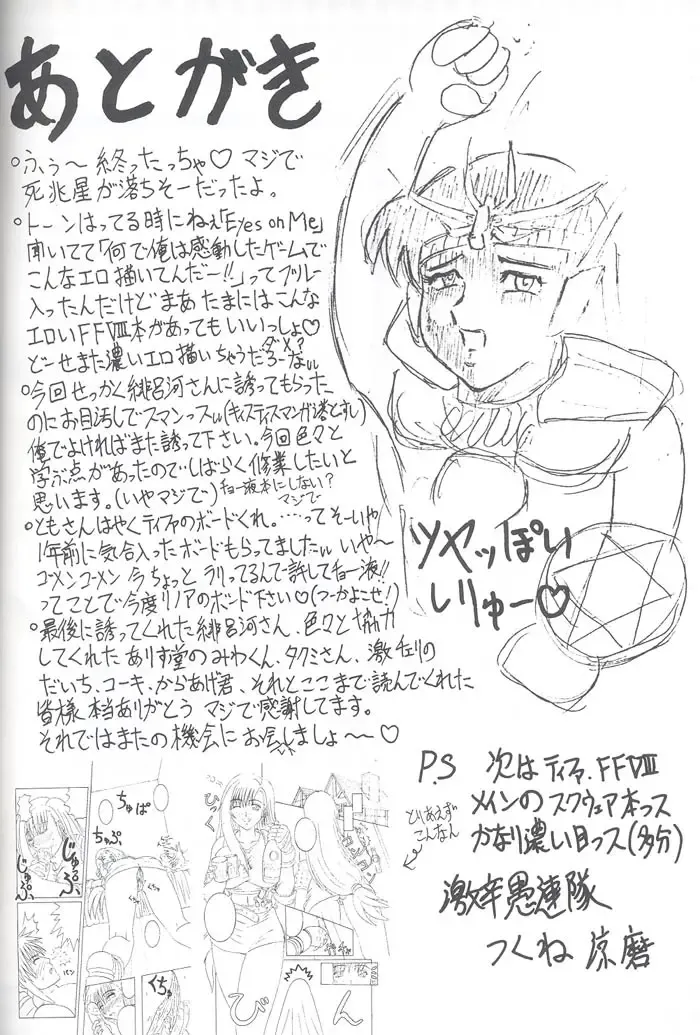 あとがき
○ふぅ〜終ったっちゃ♡マジで
死兆星が落ちそーだったよ。
○トーンはってる時にねぇ「Eyes on Me」
聞いてて「何で俺は感動したゲームで
こんなエロ描いてんだー!!」ってブルー
入ったんだけどまあたまにはこんな
エロいFFⅧ本があってもいいっしょ♡
ダメ?
どーせまた濃いエロ描いちゃうだろーな
○今回せっかく緋呂河さんに誘ってもらった
のにお目汚しでスマンっス
俺でよければまた誘って下さい。今回色々と
学ぶ点があったのでしばらく修業したいと
思います。(いやマジで)
チョー液本にしない?
マジで
○ともさんはやくティファのボードくれ。……ってそーいや
1年前に気合入ったボードもらってましたいや〜
ゴメンゴメン今ちょっとラリってるんで許してチョー液!!
ってことで今度リノアのボード下さい♡(つーかよこせ!)
○最後に誘ってくれた緋呂河さん、色々と協力
してくれたありす堂のみわくん、タクミさん、激チェリの
だいち、コーキ、からあげ君、それとここまで読んでくれた
皆様本当ありがとうマジで感謝してます。
それではまたの機会にお会いしましょ〜♡
ツヤッぽい
しりゅー♡
P.S 次はティファ.FFⅦ
メインのスクウェア本っス
かなり濃い目っス(多分)
とりあえず
こんなん
激辛愚連隊
つくね涼磨
ちゅぱ
ちゅぷ
じゅぷ
じゅぷ
ひっく
パン
くちゅ
びん